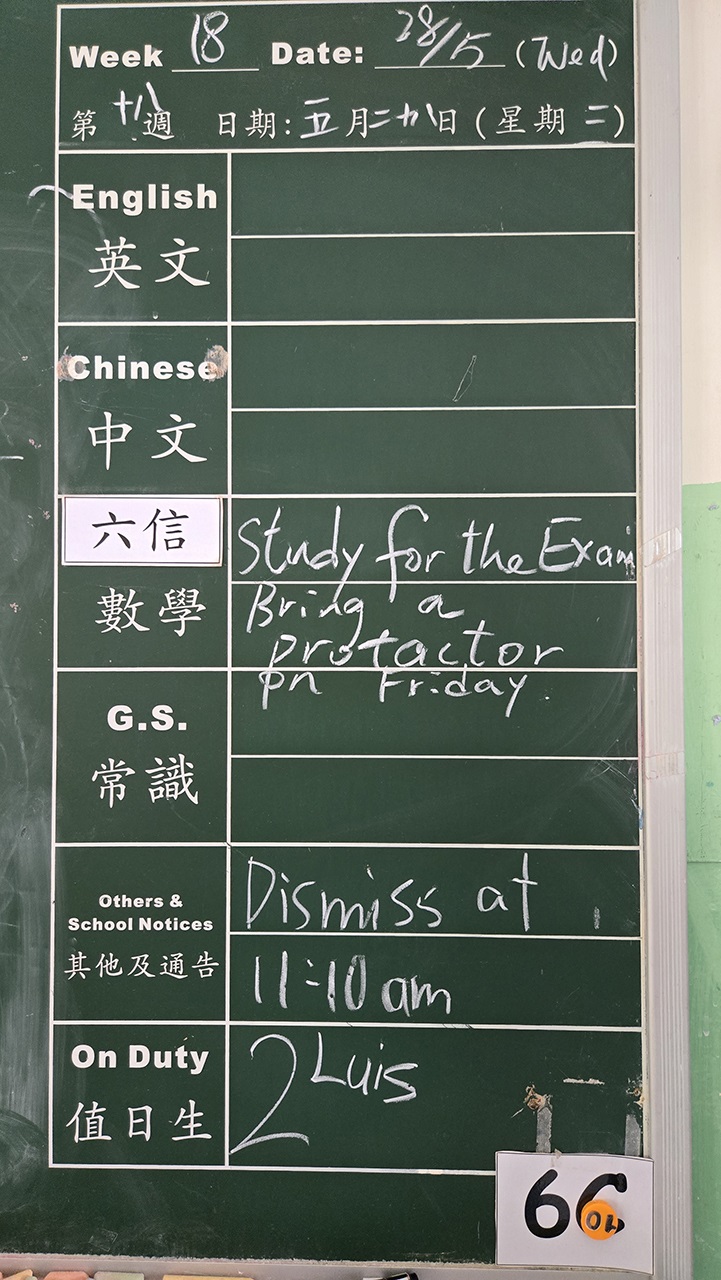 Week 18 Date: 28/5 (Wed)
第十八週 日期:五月二十八日(星期二)
English
英文
Chinese
中文
六信
數學
Study for the Exam
Bring a
protactor
on Friday.
G.S.
常識
Others &
School Notices
其他及通告
Dismiss at
11:10 am
On Duty
值日生
2 Luis